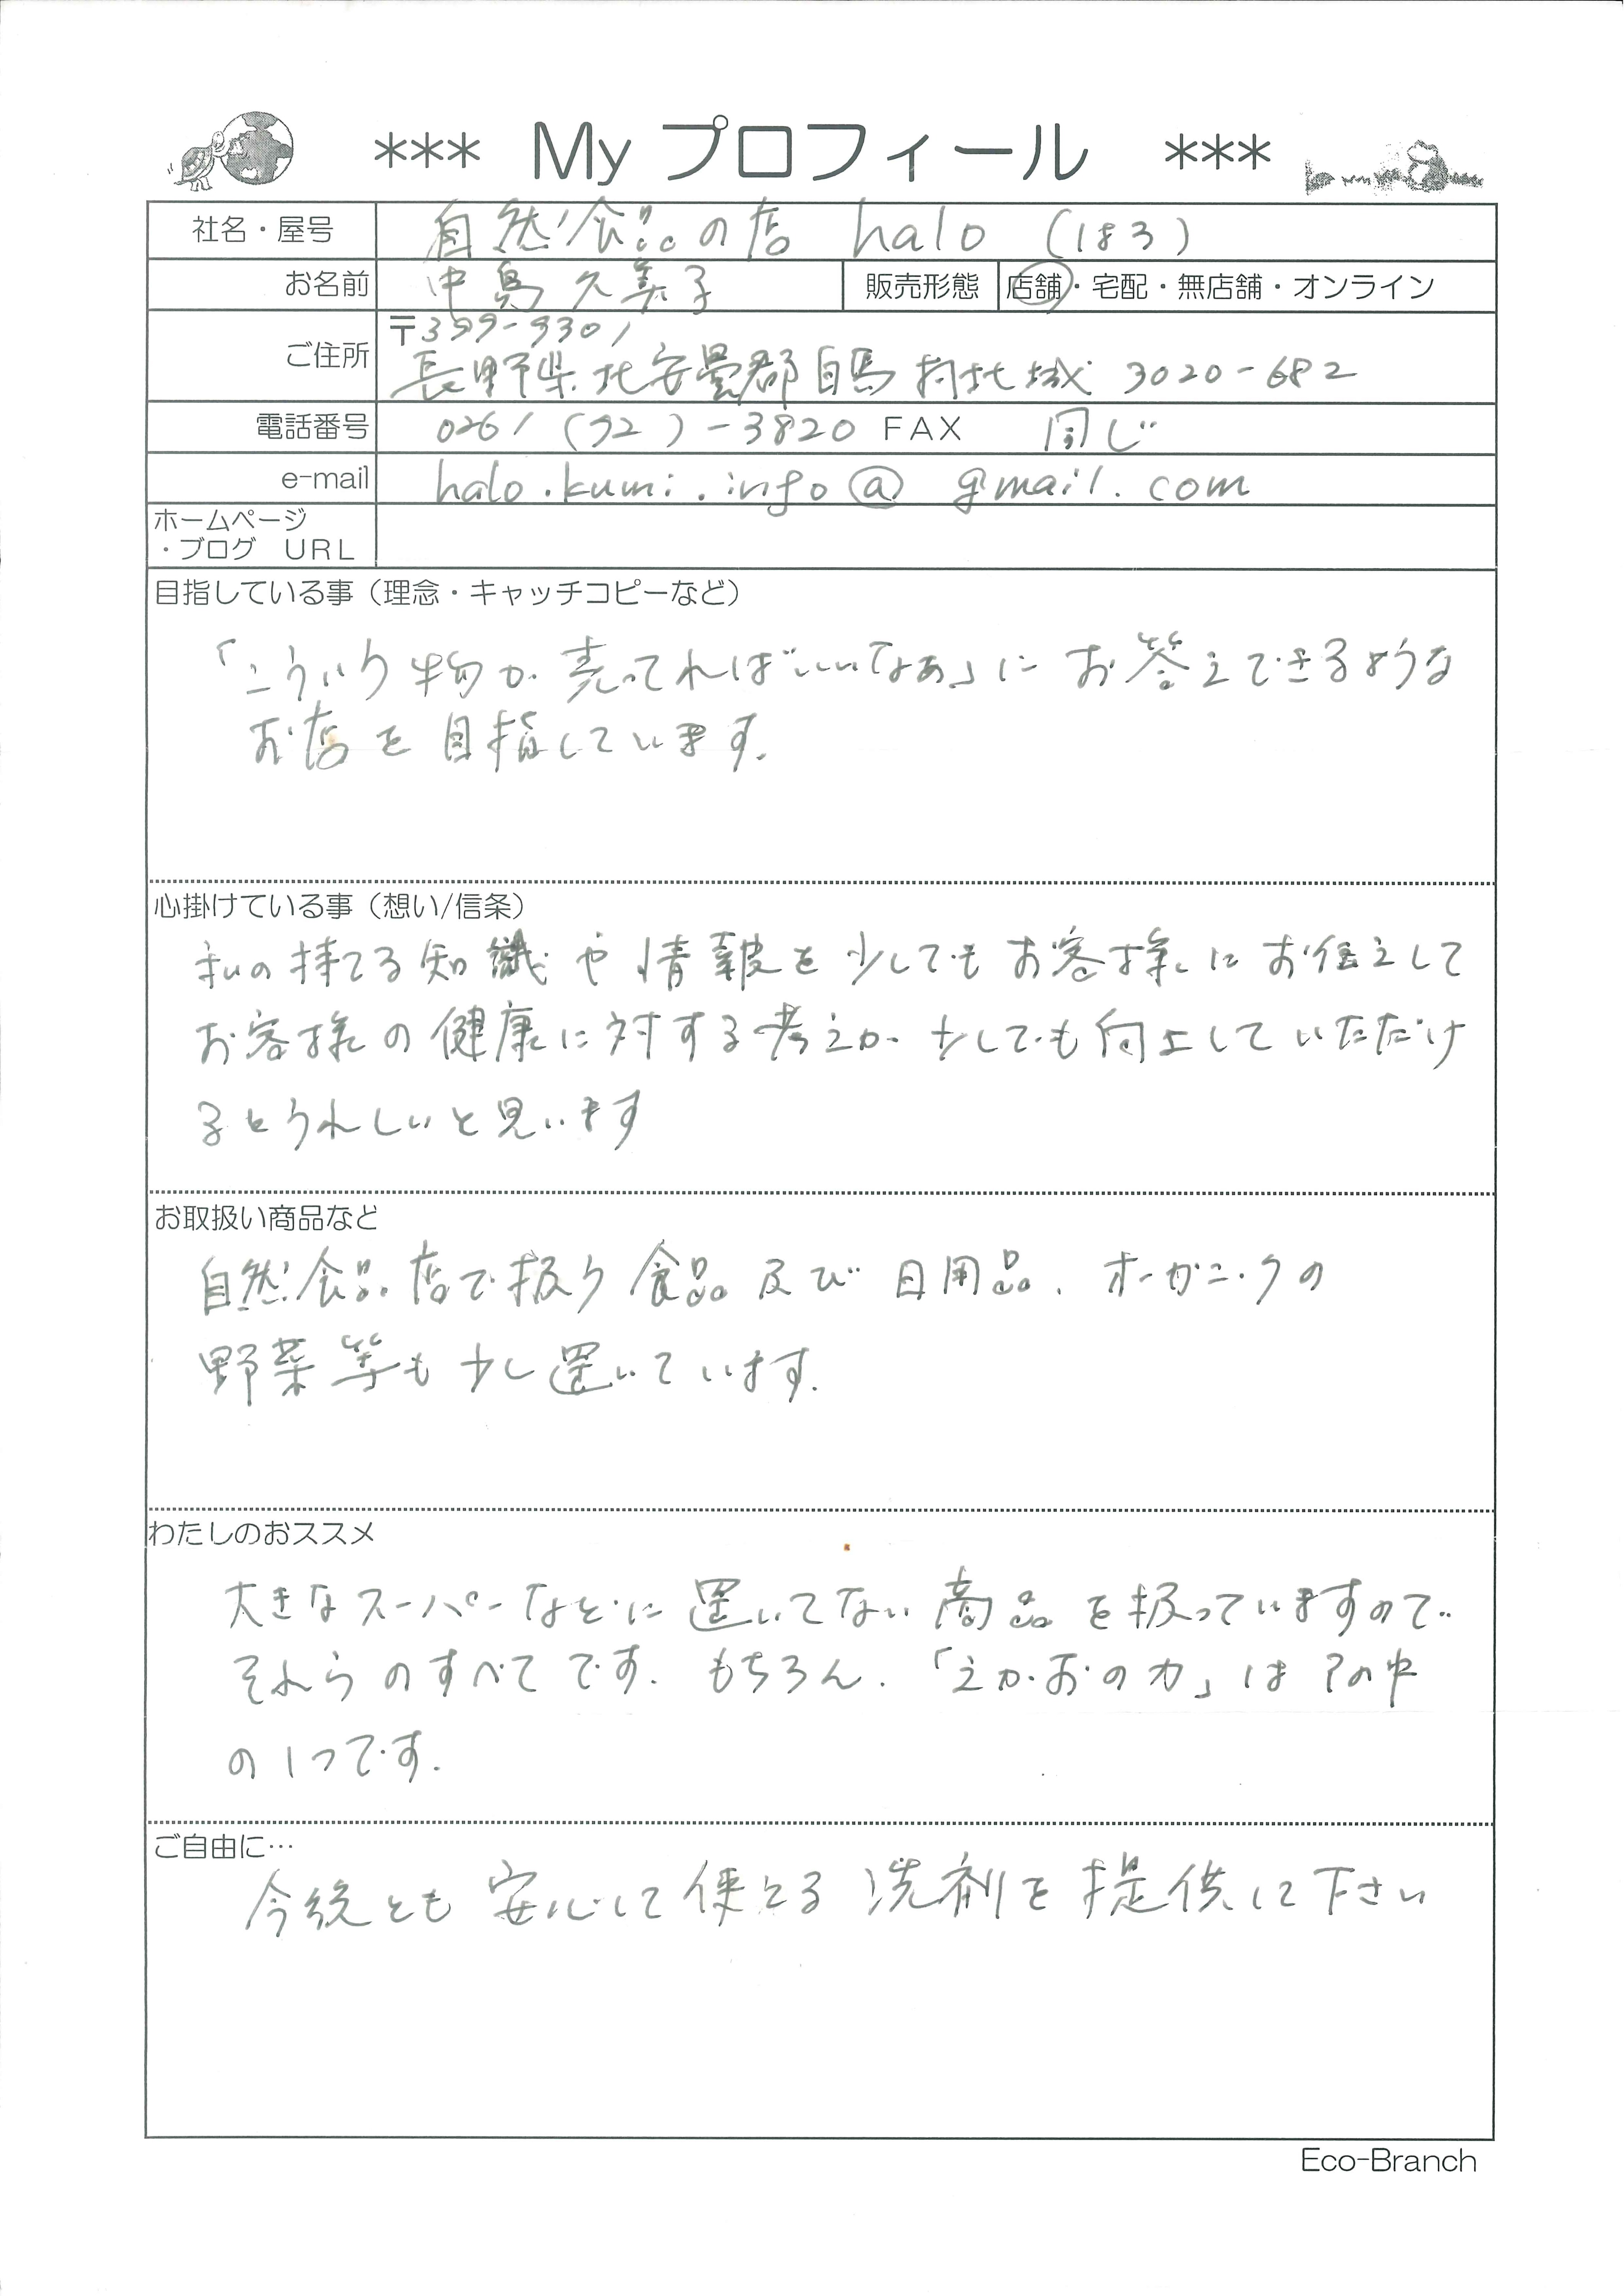 *** My プロフィール ***
社名・屋号 自然食品の店 halo (はろ)
お名前 中島久美子 販売形態 店舗・宅配・無店舗・オンライン
ご住所 〒399-9301
長野県北安曇郡白馬村北城 3020-682
電話番号 0261 (72) -3820 FAX 同じ
e-mail halo.kumi.info@gmail.com
ホームページ
・ブログ URL
目指している事(理念・キャッチコピーなど)
「こういう物が売ってればいいなぁ」にお答えできるような
お店を目指しています.
心掛けている事(想い/信条)
私の持てる知識や情報を少しでもお客様にお伝えして
お客様の健康に対する考えが少しでも向上していただけ
るとうれしいと思います
お取扱い商品など
自然食品店で扱う食品及び日用品、オーガニックの
野菜等も少し置いています.
わたしのおススメ
大きなスーパーなどに置いてない商品を扱っていますので
それらのすべてです. もちろん.「えがおの力」はその中
の1つです.
ご自由に…
今後とも安心して使える洗剤を提供して下さい
Eco-Branch